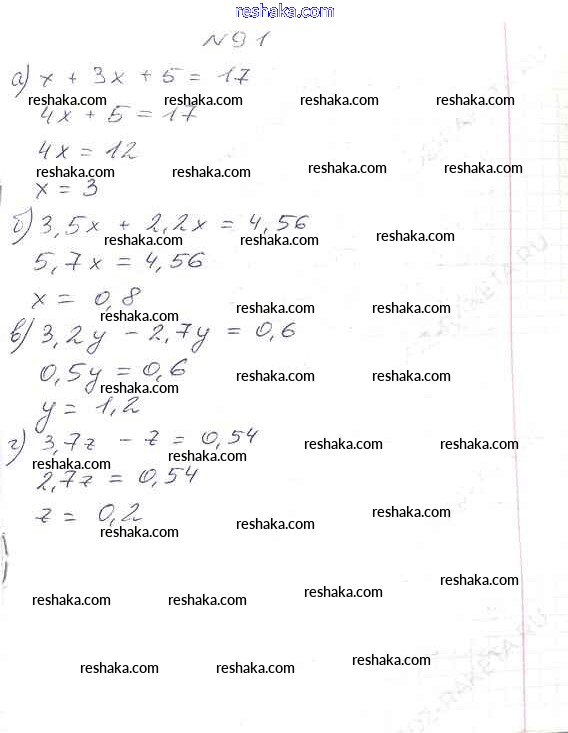 reshaka.com
№91
а) x + 3x + 5 = 17
reshaka.com reshaka.com reshaka.com reshaka.com
4x + 5 = 17
4x = 12
reshaka.com reshaka.com reshaka.com reshaka.com
x = 3
б) 3,5x + 2,2x = 4,56
reshaka.com reshaka.com reshaka.com
5,7x = 4,56
x = 0,8
reshaka.com reshaka.com reshaka.com
в) 3,2y - 2,7y = 0,6
0,5y = 0,6
reshaka.com reshaka.com reshaka.com
y = 1,2
г) 3,7z - z = 0,54
reshaka.com reshaka.com reshaka.com reshaka.com
2,7z = 0,54
z = 0,2
reshaka.com reshaka.com reshaka.com
reshaka.com reshaka.com reshaka.com reshaka.com
reshaka.com reshaka.com reshaka.com